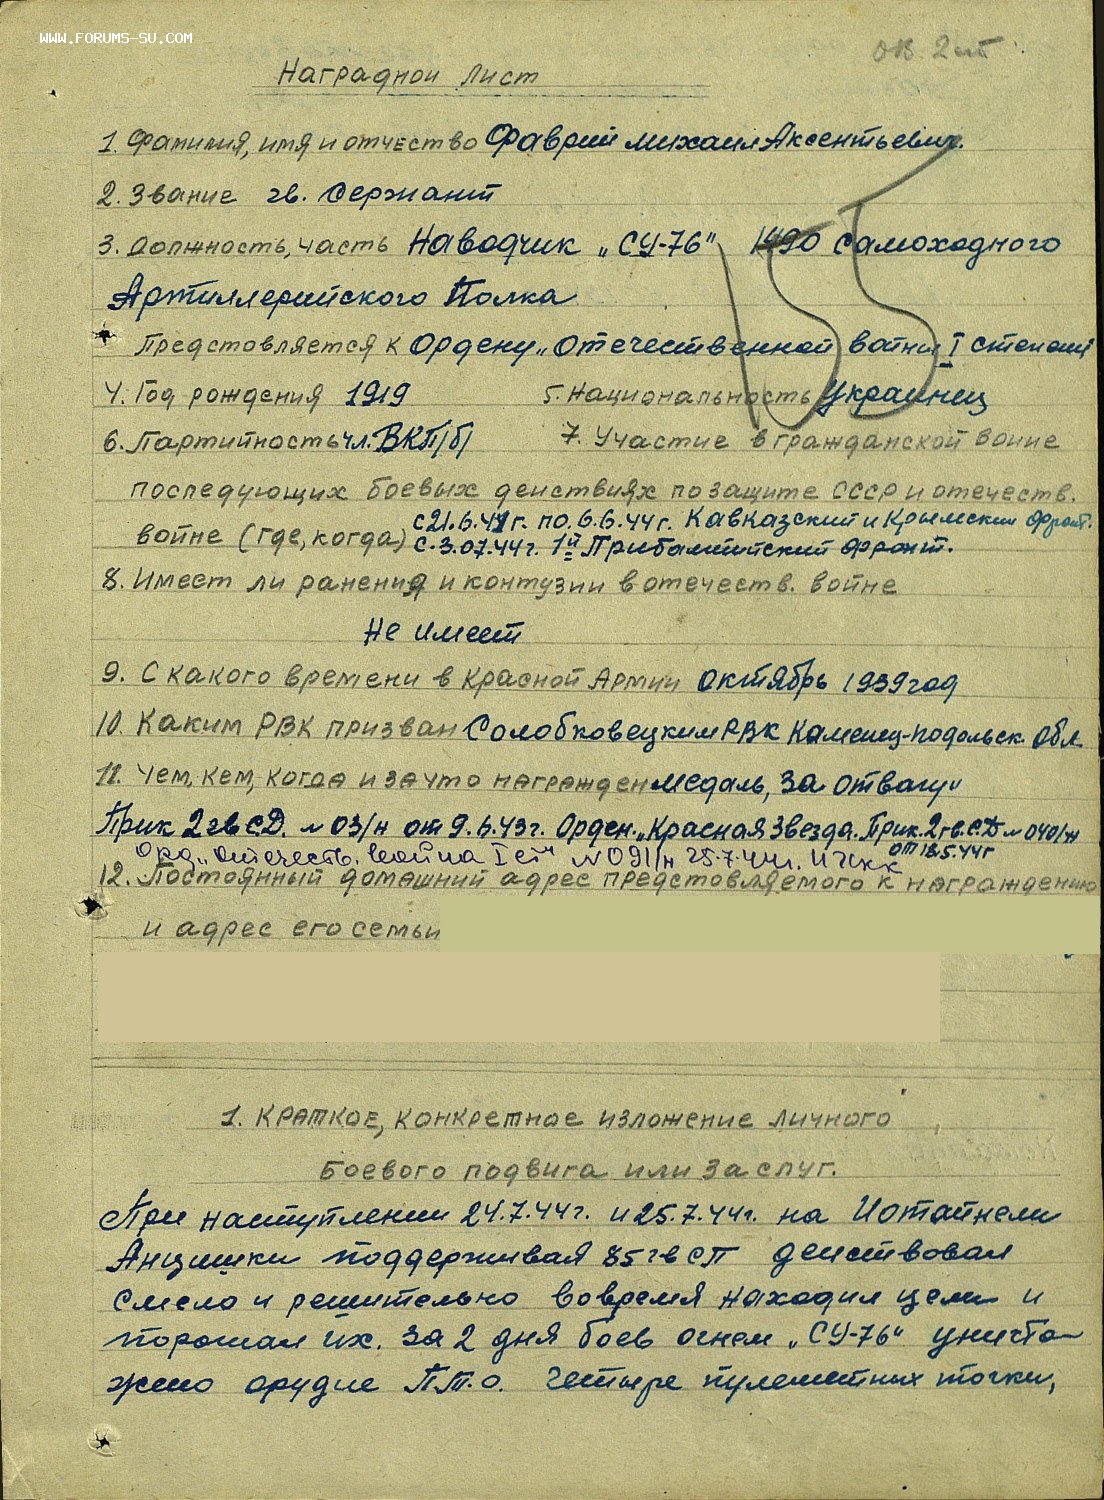 WWW.FORUMS-SU.COM
Наградной лист
1. Фамилия, имя и отчество Фаврий Михаил Аксентьевич.
2. Звание гв. Сержант
3. Должность, часть Наводчик „СУ-76" 1490 Самоходного
Артиллерийского Полка
Предстовляется к Ордену „Отечественной войны I степени
4. Год рождения 1919 5. Национальность Украинец
6. Партийность чл. ВКП/б/ 7. Участие в гражданской войне
последующих боевых действиях по защите СССР и отечеств.
войне (где, когда) с 21.6.41г. по 6.6.44г. Кавказский и Крымский фронт.
с 3.07.44г. 1й Прибалтийский фронт.
8. Имеет ли ранения и контузии в отечеств. войне
Не имеет
9. С какого времени в Красной Армии октябрь 1939 год
10. Каким РВК призван Солобковецким РВК Каменец-Подольск. Обл.
11. Чем, кем, когда и за что награжден медаль „За отвагу"
Прик 2 гв СД. № 03/н от 9.6.43г. Орден „Красная Звезда. Прик. 2 гв. СД № 040/н
от 18.5.44г
Орд „Отечеств. война I ст" № 091/н 25.7.44г.
12. Постоянный домашний адрес предстовляемого к награждению
и адрес его семьи
1. Краткое, конкретное изложение личного
боевого подвига или заслуг.
При наступлении 24.7.44г. и 25.7.44г. на
поддерживая 85 гв СП действовал
смело и решительно вовремя находил цели и
порошал их. За 2 дня боев огнем „СУ-76" уничто-
жено орудие П.Т.О. четыре пулеметных точки,